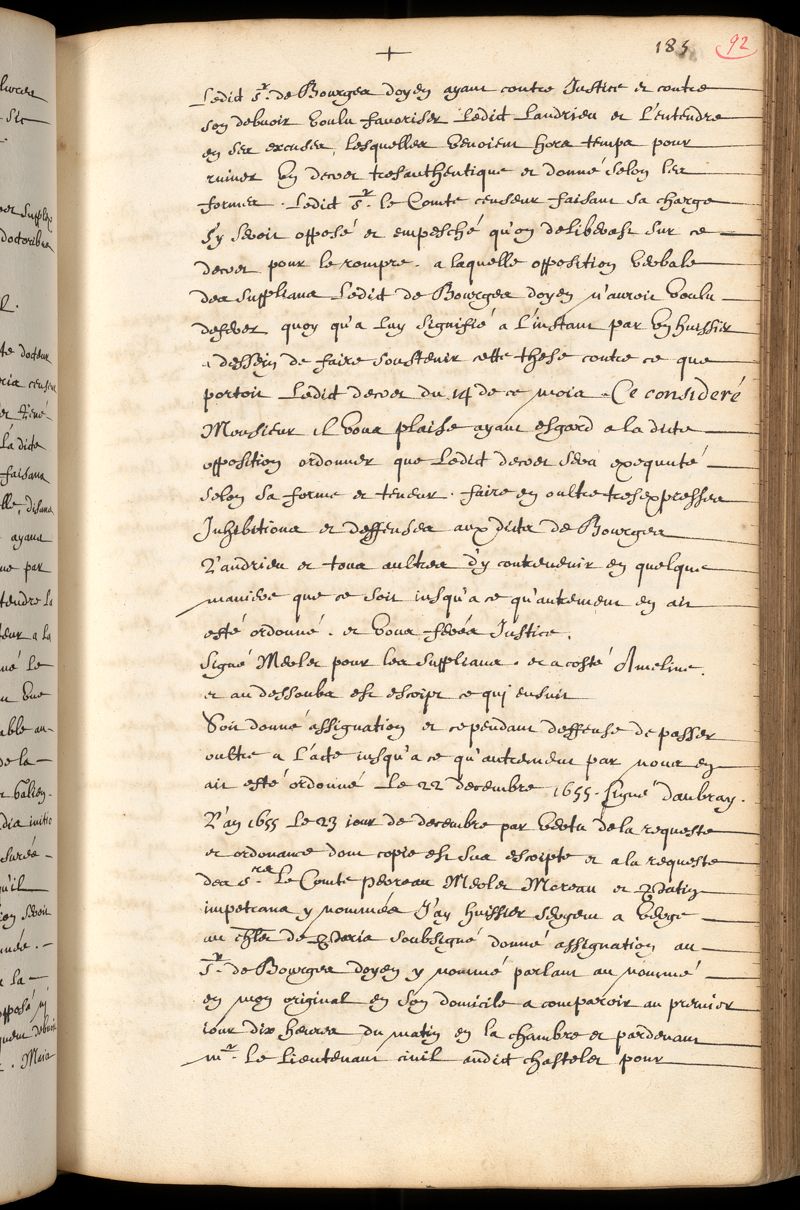 185 92
Ledict Sr. de Bourges doyen ayant contre Justice et contre
son debuoir voulu fauoriser Ledict Landrieu et l'entendre
en ses excuses, lesquelles venoient hors temps pour
ruiner un decret tresauthentique et donné selon les
formes. Ledict Sr. le Comte censeur faisant sa charge
s'y seroit opposé et empesché qu'on deliberast sur ce
decret pour le rompre. a laquelle opposition verbale
des suppliants Ledict de Bourges doyen n'auroit voulu
deferer quoy qu'a luy signifié a l'instant par un huissier
a dessein de faire soustenir cette these contre ce que
portoit Ledict decret du 14 de ce mois. Ce consideré
Monsieur il vous plaise ayant esgard a la dicte
opposition ordonner que Ledict decret sera exequuté
selon sa forme et teneur. faire en oultre tresexpresses
Inhibitions et deffenses aux dicts de Bourges
Landrieu et tous aultres d'y contreuenir en quelque
maniere que ce soit iusqu'a ce qu'autrement en ait
esté ordonné. et vous ferés Justice.
Signé Merlet pour les suppliants. et a costé Ameline.
et au dessoubs est escript ce qui ensuit
Soit donné assignation et cependant deffense de passer
oultre a l'acte iusqu'a ce qu'autrement par nous en
ait esté ordonné Le 22 decembre 1655. signé daubray.
L'an 1655 Le 23 iour de decembre par vertu de la requeste
et ordonance dont copie est sus escripte et a la requeste
des Srs Le Comte Perreau Merlet Moreau et
impetrans y nommés J'ay huissier sergent a verge
au chlet de Paris soubsigné donné assignation au
Sr. de Bourges doyen y nommé parlant au nommé
en mon original en son domicile a comparoir au premier
iour dix heures du matin en la chambre et pardeuant
mr. le Lieutenant ciuil audict chastelet pour